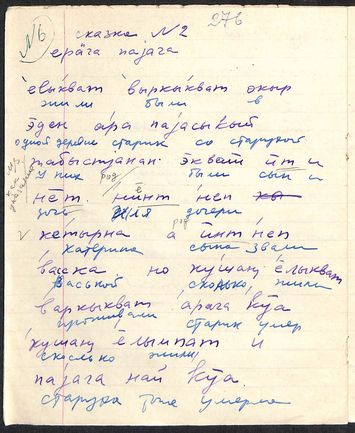 №6 сказка №2 276
ера́га паjага
е́лыкват вы́ркыкват окыр
жили были в
э́ден ара паjасы́кый
одной деревне старик со старухой
та́быстjанан. э́квай ӣт и
у них были сын и
не̄т. нинт неп
дочь имя дочери
ке́тырна а ӣнт неп
Катерина сына звали
ва́ська но ку́шаӈ е́лыкват
Васькой сколько, жили
варкыкват. а́рага кӯа
проживали старик умер
ку́шаӈ е́лымпат и
сколько жили
паjага най кӯа.
старуха тоже умерла